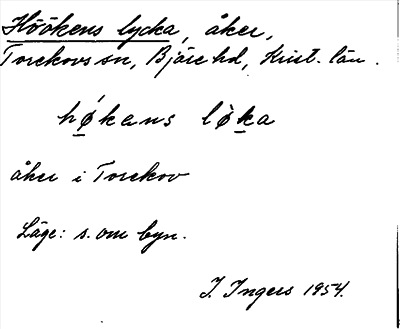 Höökens lycka, åker,
Torekovs sn, Bjäre hd, Krist. län.
hǿkens lø̀ka
åker i Torekov
Läge: s. om byn.
I. Ingers 1954.